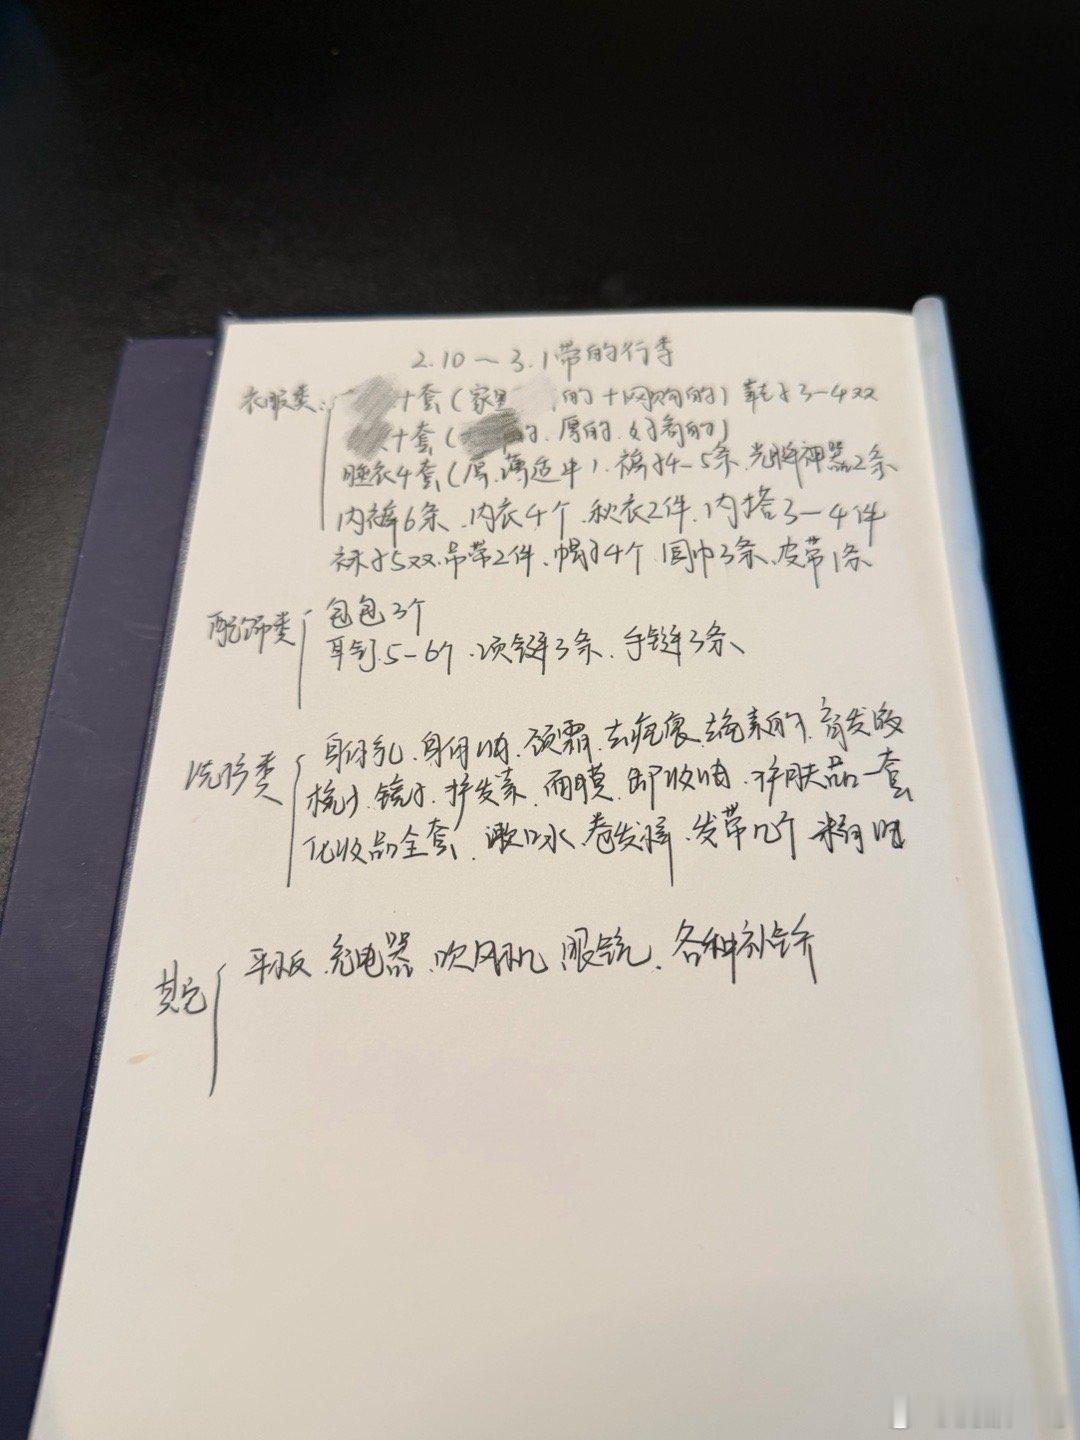 2.10～3.1带的行李
衣服类: 十套(家里 的+网购的) 鞋子3-4双
十套( 的、厚的、好看的)
睡衣4套(厚、薄适中)、裤子4-5条、光腿神器2条
内裤6条、内衣4个、秋衣2件、内搭3-4件
袜子5双、吊带2件、帽子4个、围巾3条、皮带1条
配饰类 包包3个
耳钉5-6个、项链3条、手链3条、
洗护类 身体乳、身体油、颈霜、去疤痕、去色素的、育发液
梳子、镜子、护发素、面膜、卸妆油、护肤品一套
化妆品全套、漱口水、卷发棒、发带几个
其它 平板、充电器、吹风机、眼镜、各种补剂